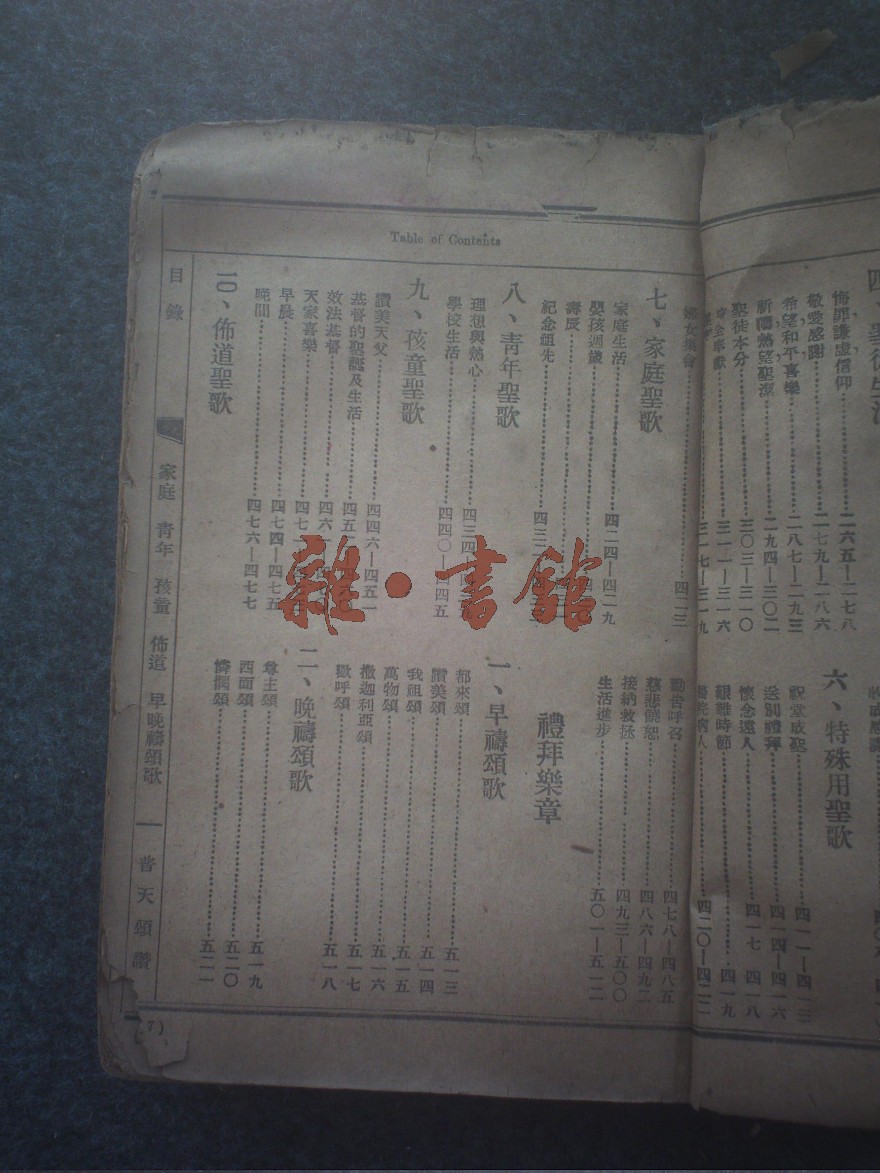 Table of Contents
悔罪謙虛信仰……二六五—二七八
敬愛感謝……二七九—二八六
希望和平喜樂……二八七—二九三
祈禱熱望聖潔……二九四—三〇二
聖徒本分……三〇三—三一〇
三一一—三一六
三一七—三一九
六、特殊用聖歌
祝堂成聖……四一一—四一三
送別禮拜……四一四—四一六
懷念遠人……四一七 四一八
艱難時節……四一九
病人……四二〇—四二二
婦女集會……四二三
七、家庭聖歌
家庭生活……四二四—四二九
嬰孩週歲
壽辰
紀念祖先
八、青年聖歌
理想與熱心
學校生活……四四〇—四四五
九、孩童聖歌
讚美天父……四四六—四五一
基督的聖誕及生活
效法基督
天家喜樂
早晨……四七四—四七五
晚間……四七六—四七七
十、佈道聖歌
勸告呼召……四七八—四八五
慈悲饒恕……四八六—四九二
接納救拯……四九三—五〇〇
生活進步……五〇一—五一二
禮拜樂章
一、早禱頌歌
都來頌……五一三
讚美頌……五一四
我祖頌……五一五
萬物頌……五一六
撒迦利亞頌……五一七
歡呼頌……五一八
二、晚禱頌歌
尊主頌……五一九
西面頌……五二〇
憐憫頌……五二一
目錄
家庭 青年 孩童 佈道 早晚禱頌歌
普天頌讚
(7)
雜·書館